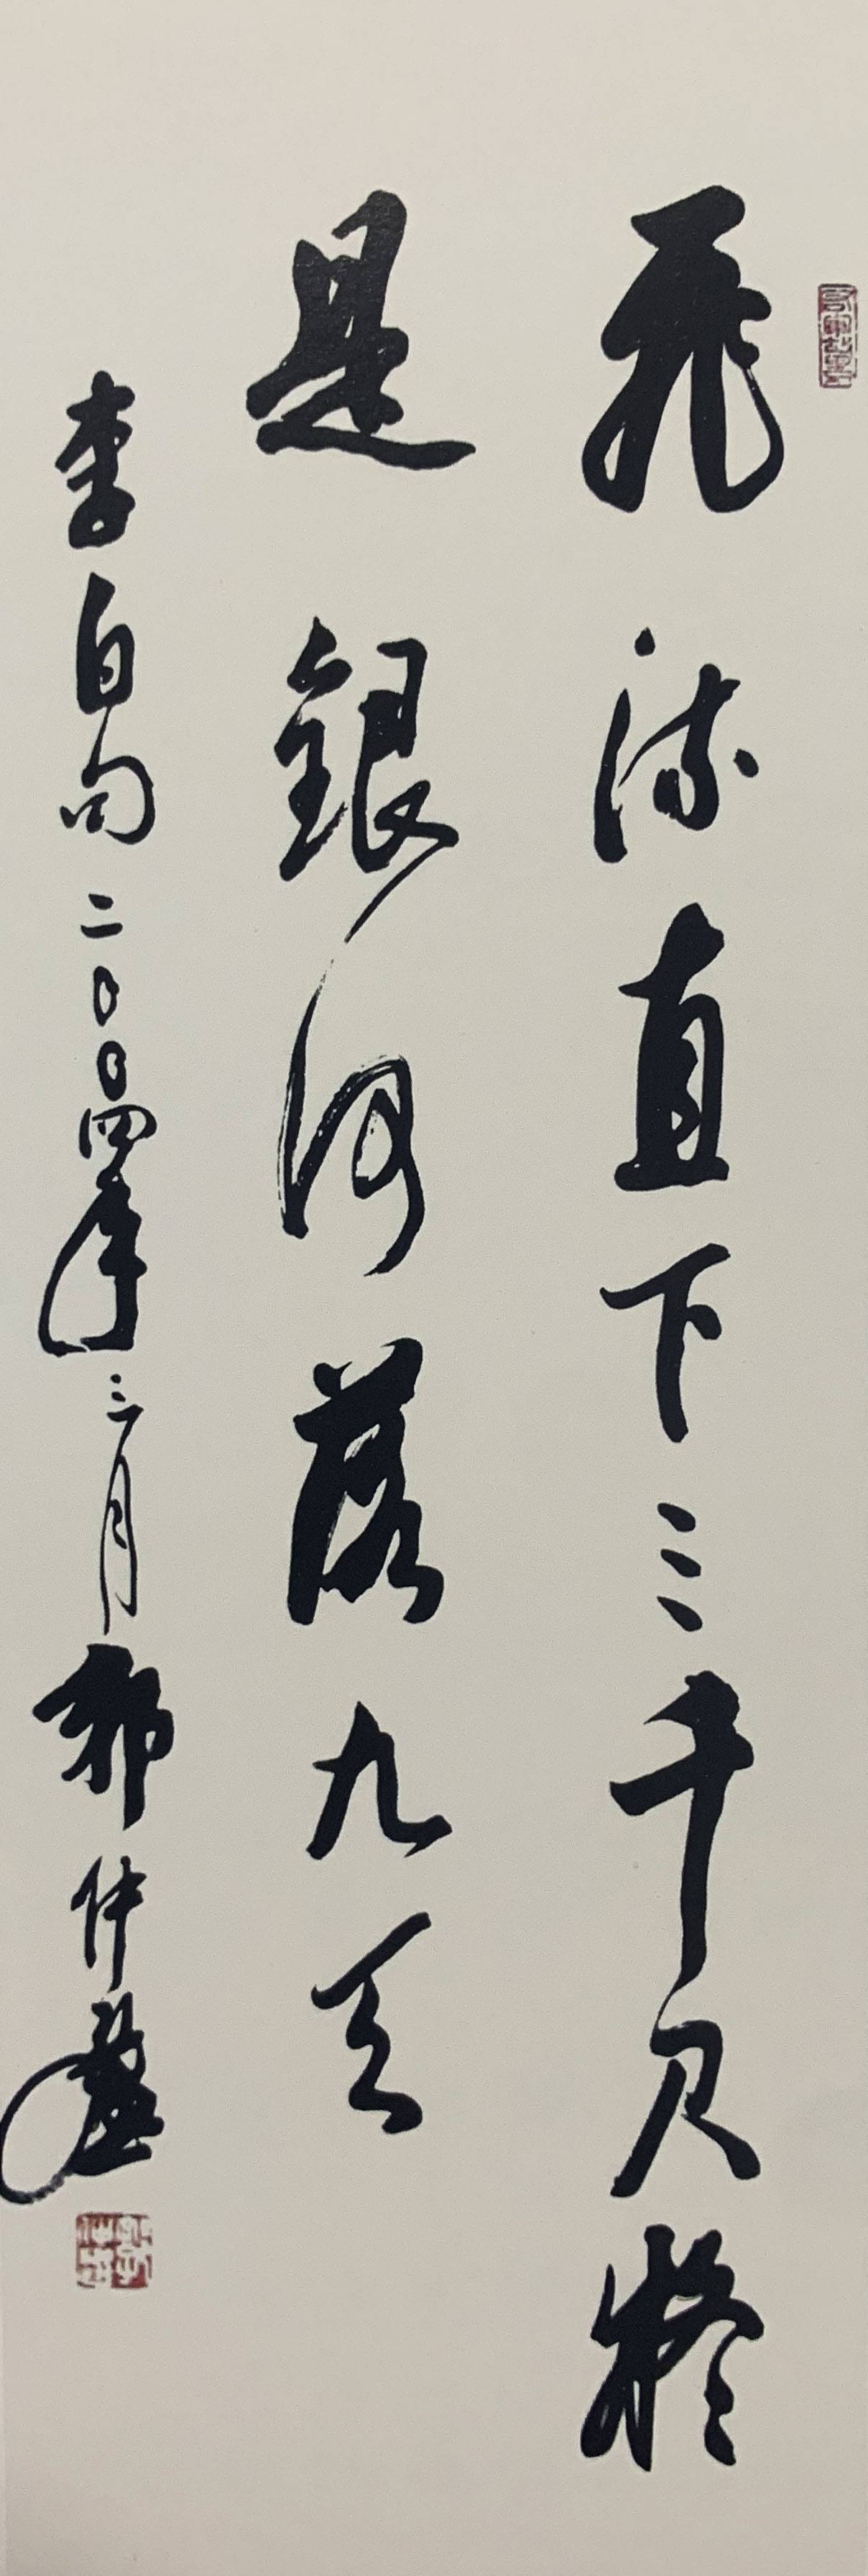 飛流直下三千尺疑
是銀河落九天
李白句二〇〇四年三月郭仲